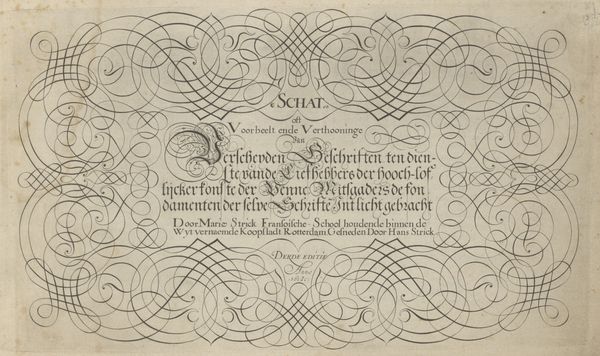 SCHAT.
oft
Voorbeelt ende Verthooninge
Van
Verscheyden Geschriften ten dien-
ste vande Liefhebbers der hooch-lof
lijcker konste der Penne Mitsgaders de fon
damenten der selve Schrifte Int licht gebracht
Door Marie Strick Fransoische-School houdende binnen de
Wyt vernaemde Koopstadt Rotterdam Gesneden Door Hans Strick
DERDE EDITIE
Anno